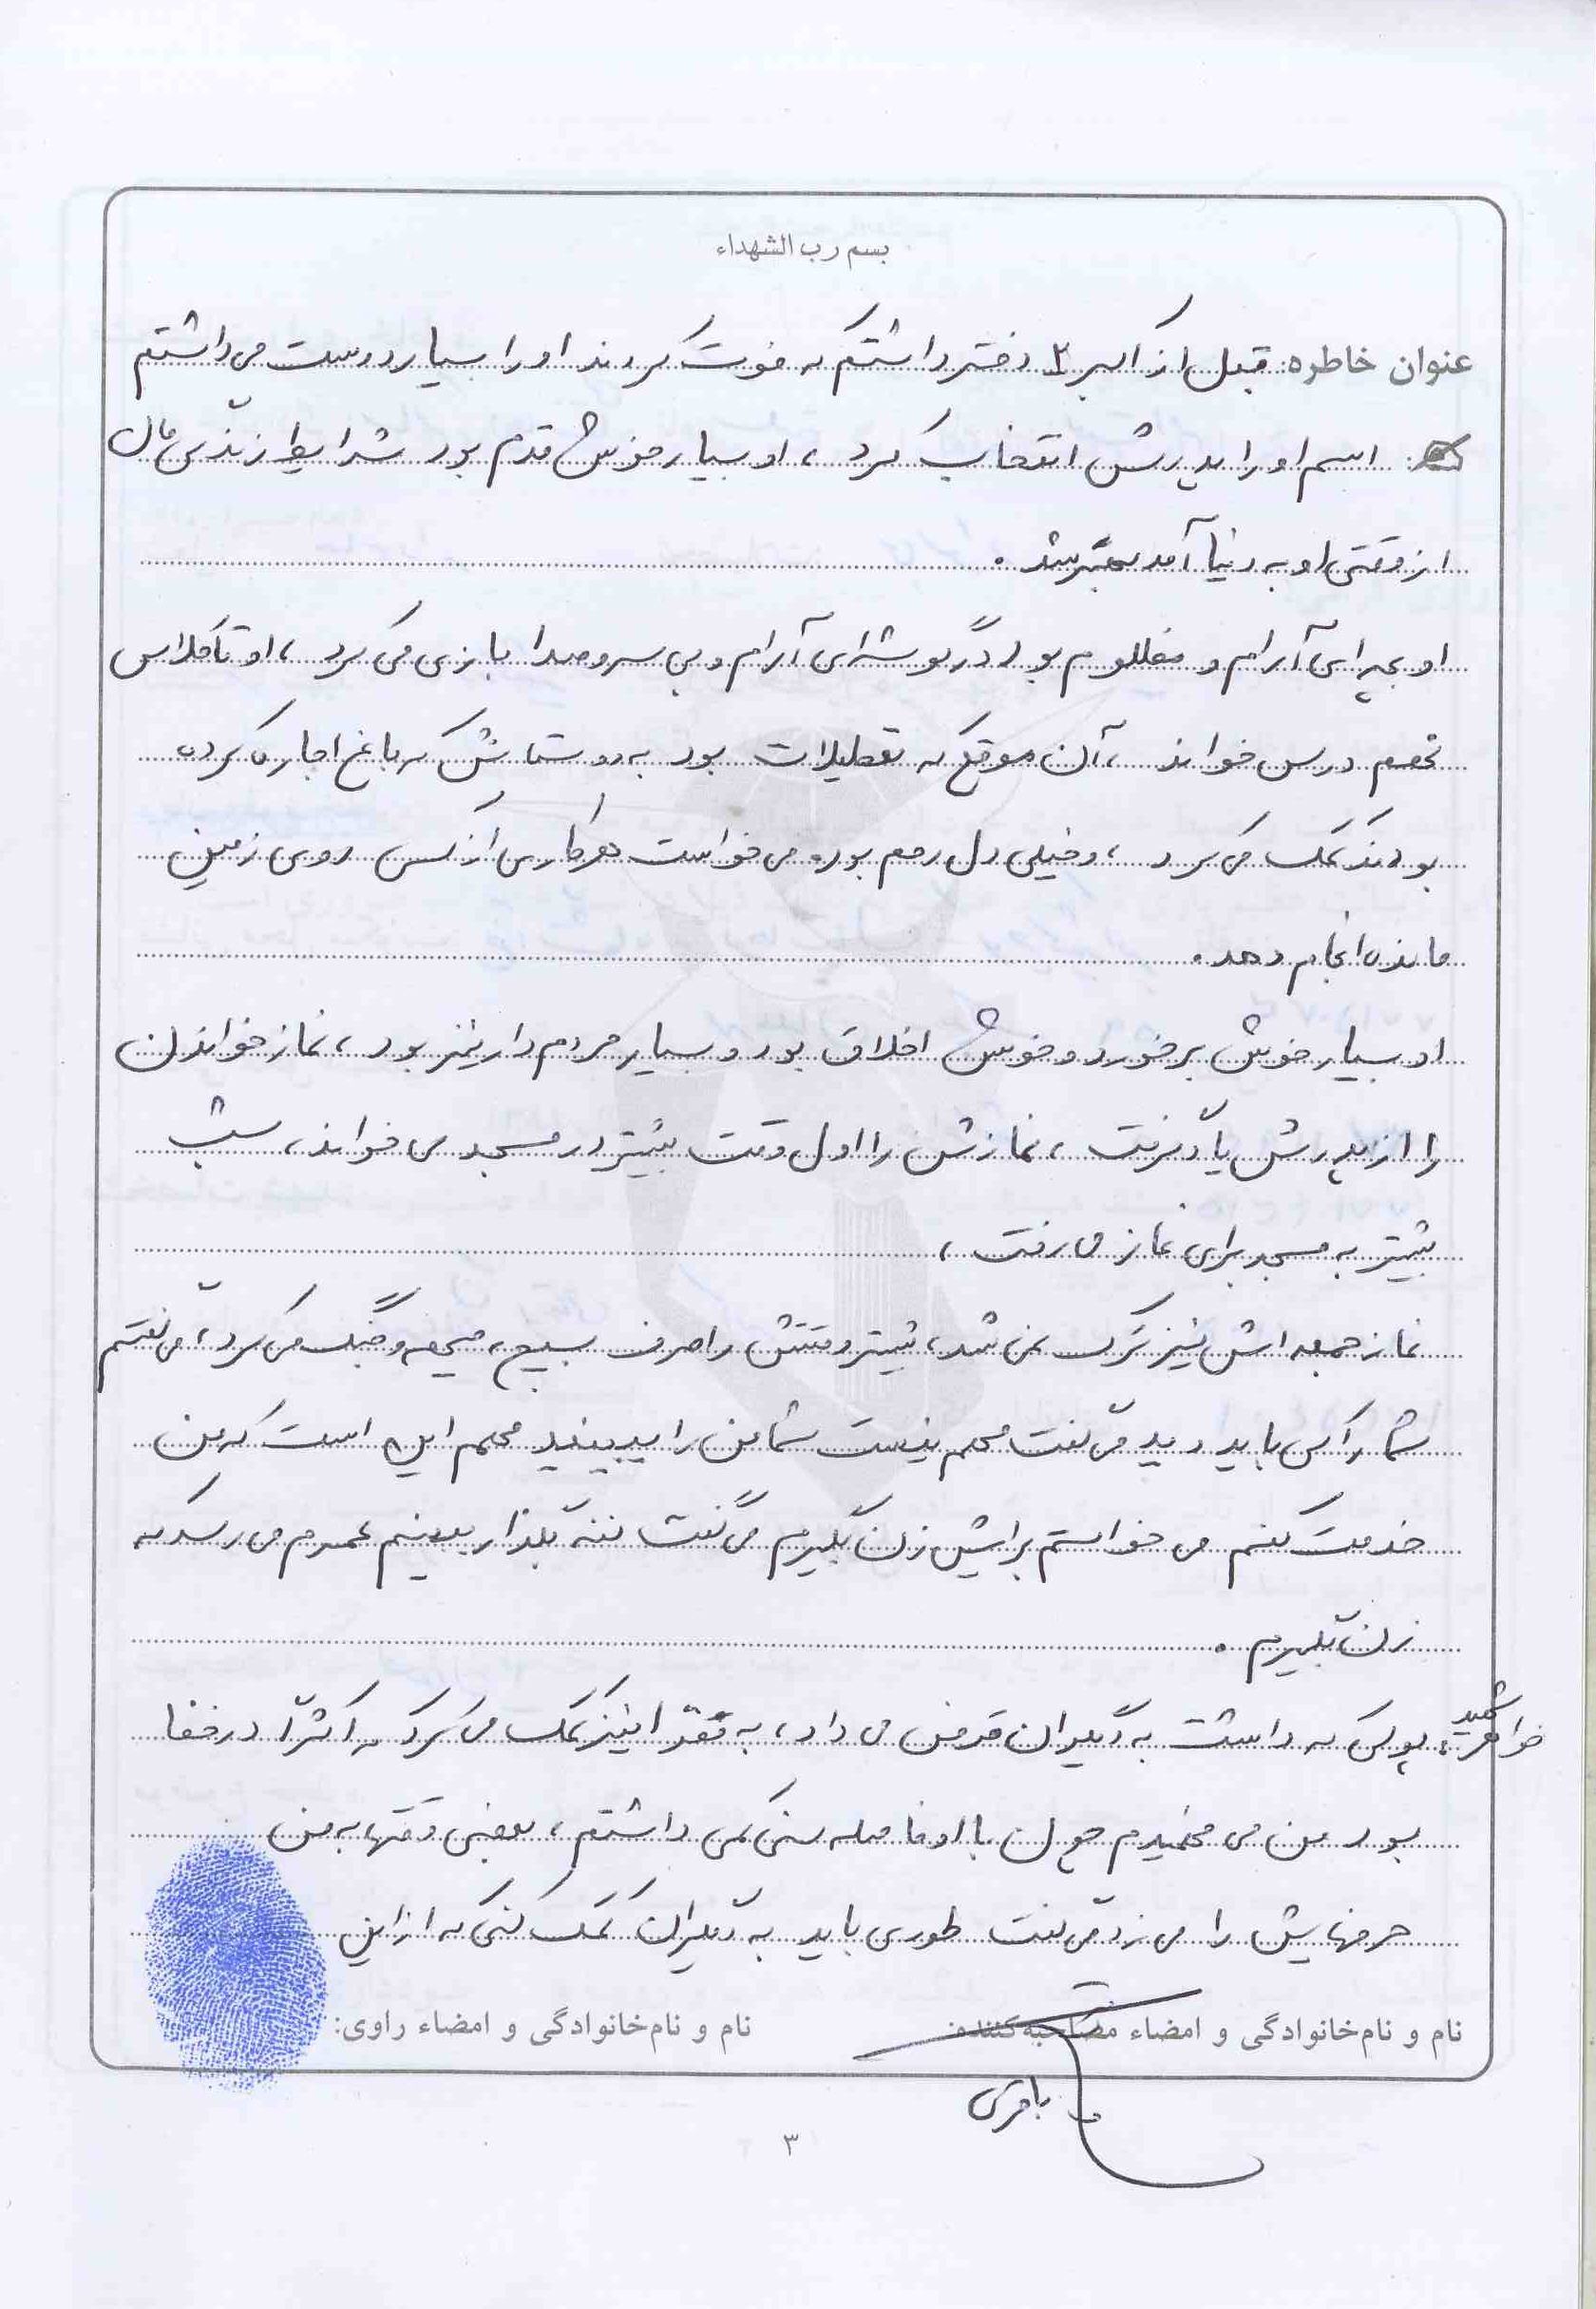 بسم رب الشهداء
عنوان خاطره: قبل از اکبر ۲ دختر داشتم که فوت کردند او را بسیار دوست می داشتم
اسم او را پدرش انتخاب کرد ، او بسیار خوش قدم بود شرایط زندگی مان
از وقتی او به دنیا آمد بهتر شد .
او بچه ای آرام و مظلوم بود در گوشه ای آرام و بی سر و صدا بازی می کرد ، او تا کلاس
نهم درس خواند ، آن موقع که تعطیلات بود به دوستانش که باغ اجاره کرده
بودند کمک می کرد ، و خیلی دل رحم بود و می خواست هر کاری از کسی روی زمین
مانده انجام دهد .
او بسیار خوش برخورد و خوش اخلاق بود و بسیار مردم دار نیز بود ، نماز خواندن
را از پدرش یاد گرفت ، نمازش را اول وقت بیشتر در مسجد می خواند ، شب
بیشتر به مسجد برای نماز می رفت ،
نماز جمعه اش نیز ترک نمی شد ، بیشتر وقتش را صرف بسیج ، جبهه و جنگ می کرد ، می گفتم
شما را کی باید دید می گفت مهم نیست شما من را ببینید مهم این است که من
خدمت کنم می خواستم برایش زن بگیرم می گفت ننه بگذار ببینم عمرم می رسد که
زن بگیرم .
خواهر شهید : پولی که داشت به دیگران قرض می داد ، به فقرا نیز کمک می کرد که اکثراً در خفا
بود من می فهمیدم چون با او فاصله سنی کمی داشتم ، بعضی وقتها به من
حرفهایش را می زد می گفت طوری باید به دیگران کمک کنی که از این
نام و نام خانوادگی و امضاء مصاحبه کننده: نام و نام خانوادگی و امضاء راوی:
باقری
۳